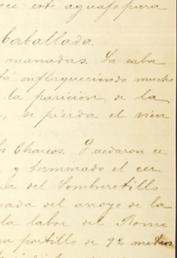 este aguaje para
Caballada.
manadas. La caba
tá enflaqueciendo mucho
la parición de la
, se pierda el vien
s Chacos. Quedaron ce
y terminado el cer
del Sombrertillo
ada del arroyo de la
la labor del Rome
portillo de 92 metros